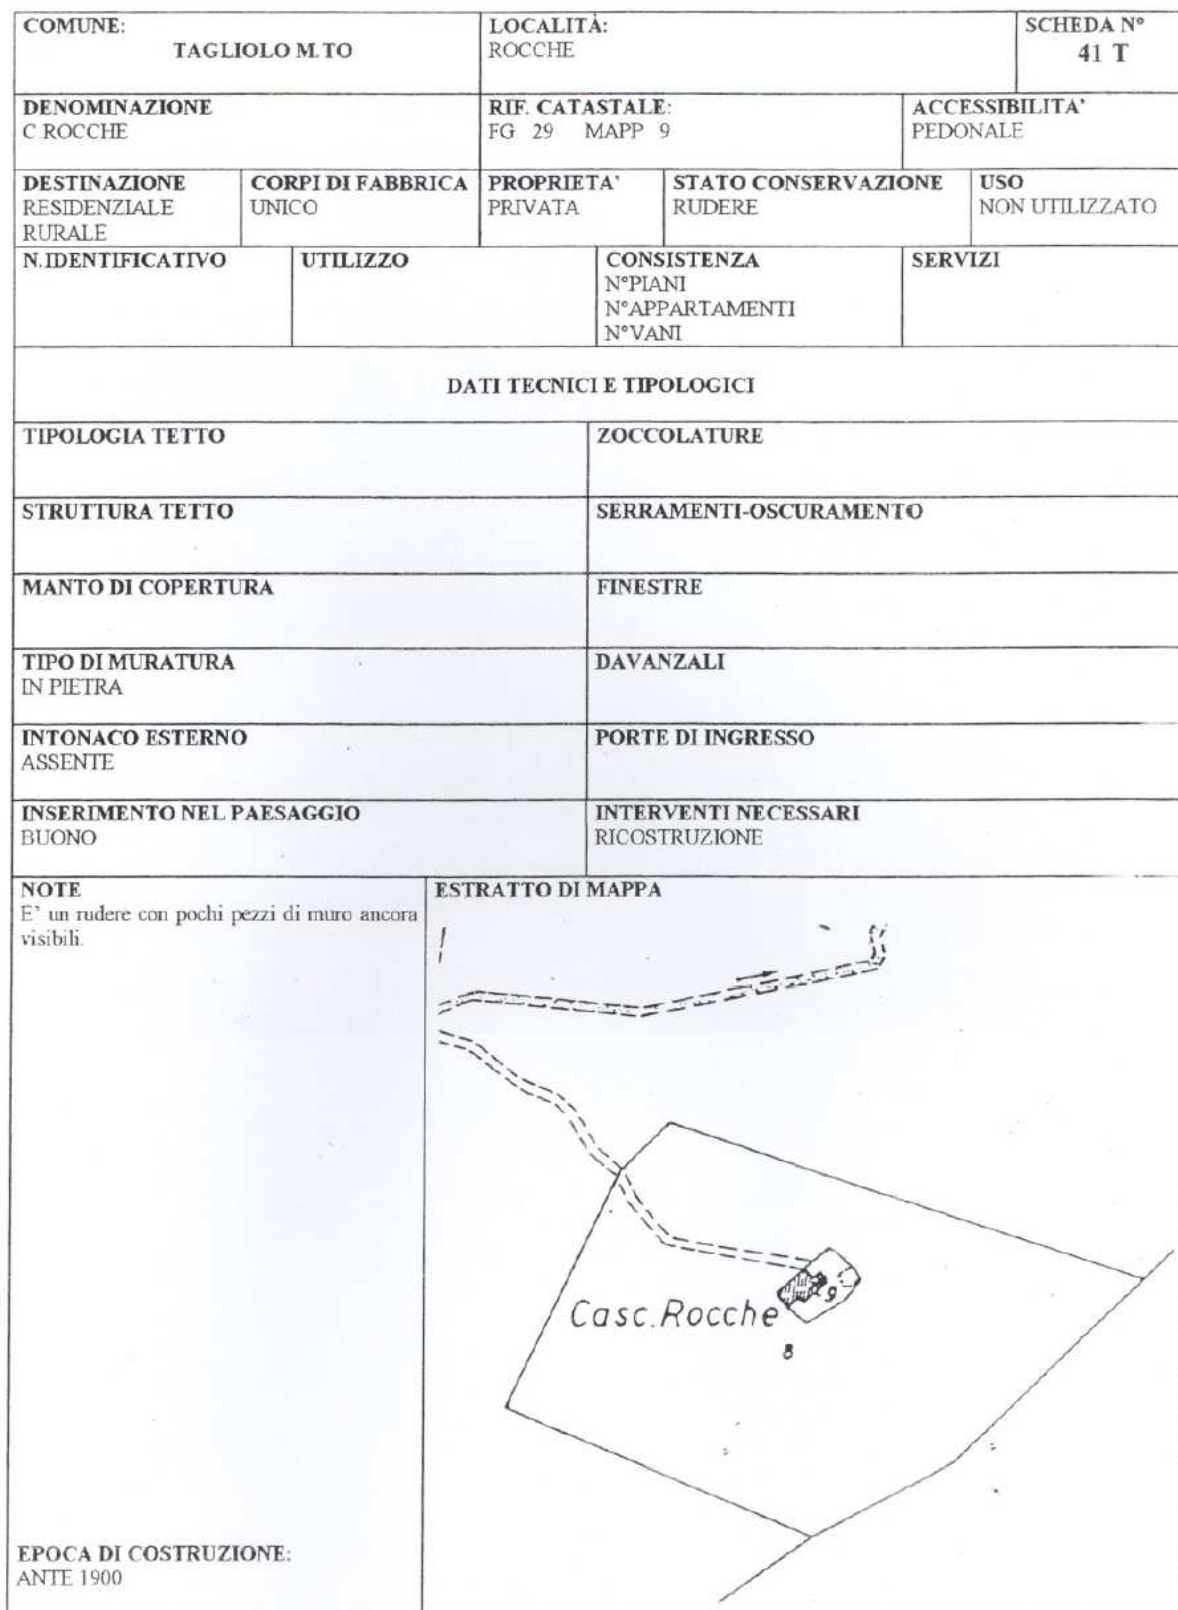 COMUNE:
TAGLIOLO M.TO
LOCALITÀ:
ROCCHE
SCHEDA N°
41 T
DENOMINAZIONE
C.ROCCHE
RIF. CATASTALE:
FG 29 MAPP 9
ACCESSIBILITA'
PEDONALE
DESTINAZIONE
RESIDENZIALE
RURALE
CORPI DI FABBRICA
UNICO
PROPRIETA'
PRIVATA
STATO CONSERVAZIONE
RUDERE
USO
NON UTILIZZATO
N.IDENTIFICATIVO
UTILIZZO
CONSISTENZA
N°PIANI
N°APPARTAMENTI
N°VANI
SERVIZI
DATI TECNICI E TIPOLOGICI
TIPOLOGIA TETTO
ZOCCOLATURE
STRUTTURA TETTO
SERRAMENTI-OSCURAMENTO
MANTO DI COPERTURA
FINESTRE
TIPO DI MURATURA
IN PIETRA
DAVANZALI
INTONACO ESTERNO
ASSENTE
PORTE DI INGRESSO
INSERIMENTO NEL PAESAGGIO
BUONO
INTERVENTI NECESSARI
RICOSTRUZIONE
NOTE
E' un rudere con pochi pezzi di muro ancora
visibili.
EPOCA DI COSTRUZIONE:
ANTE 1900
ESTRATTO DI MAPPA
9
Casc.Rocche
8